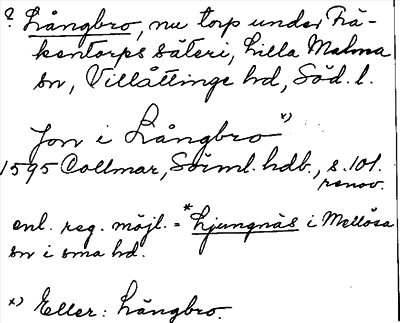 ? Långbro, nu torp under Frä-
kentorps säteri, Lilla Malma
sn, Villåttinge hd, Söd. l.
Jon i Långbro x)
1595 Collmar, Sörml. hdb., s. 101.
renov.
enl. reg. möjl. = *Ljungnäs i Mellösa
sn i sma hd.
x) Eller: Långbro.